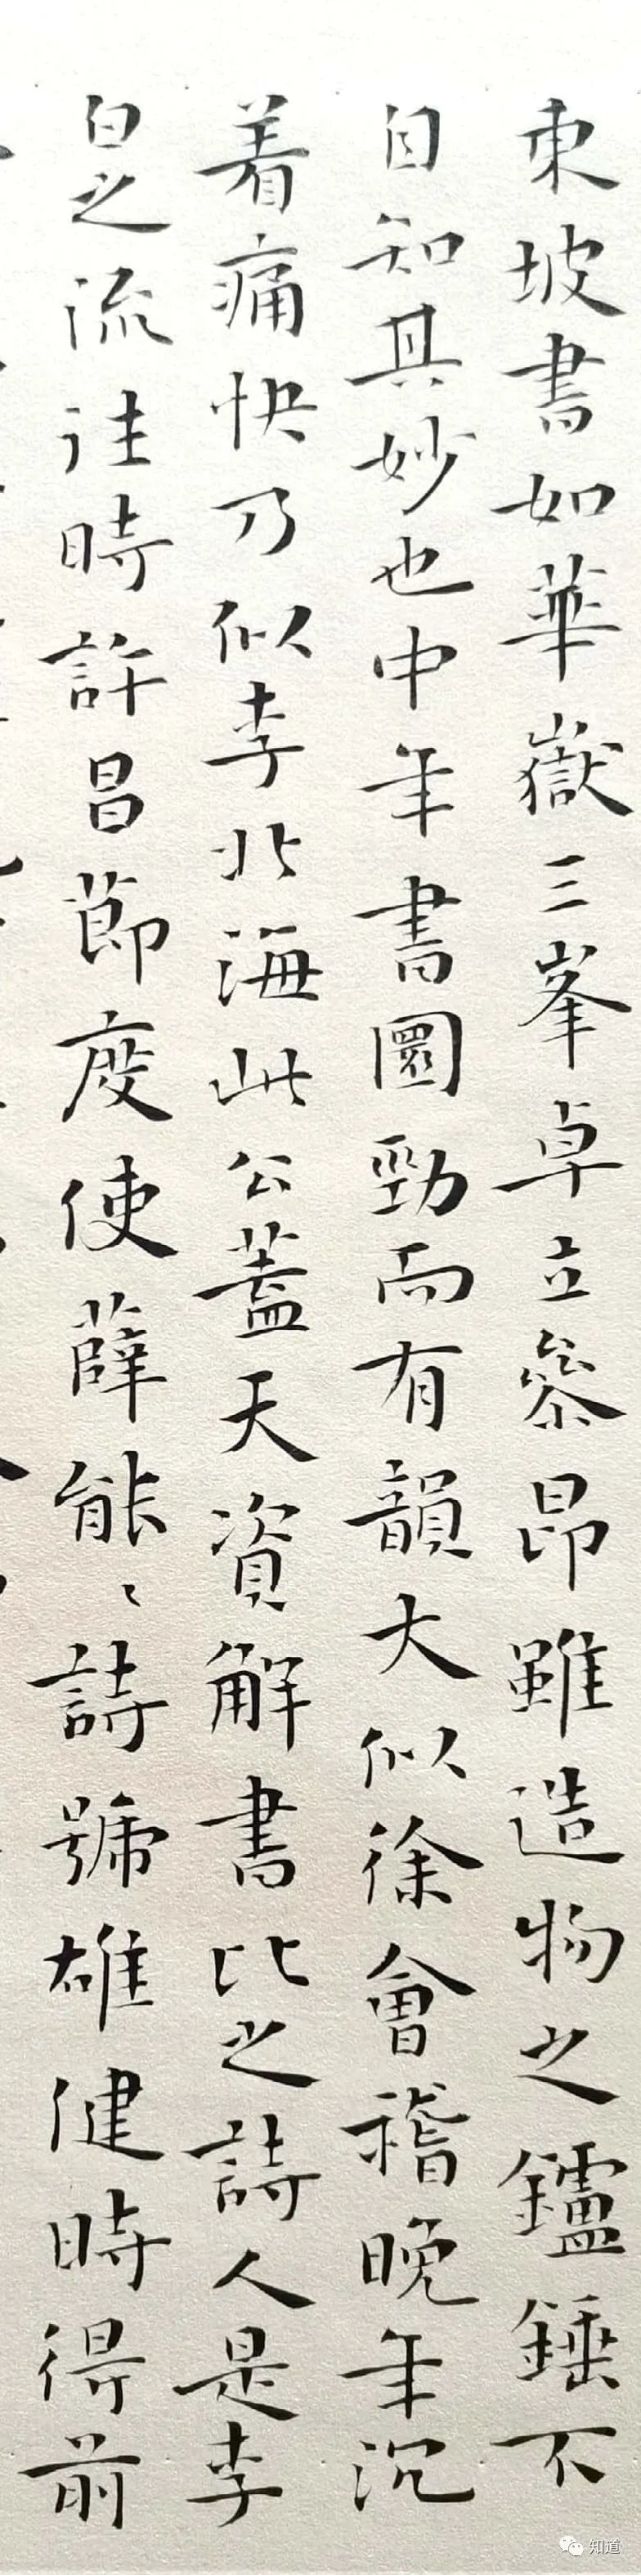 東坡書如華嶽三峯卓立參昂雖造物之鑪錘不
自知其妙也中年書圜勁而有韻大似徐會稽晚年沉
着痛快乃似李北海此公蓋天資解書比之詩人是李
白之流往時許昌節度使薛能〻詩號雄健時得前
知道